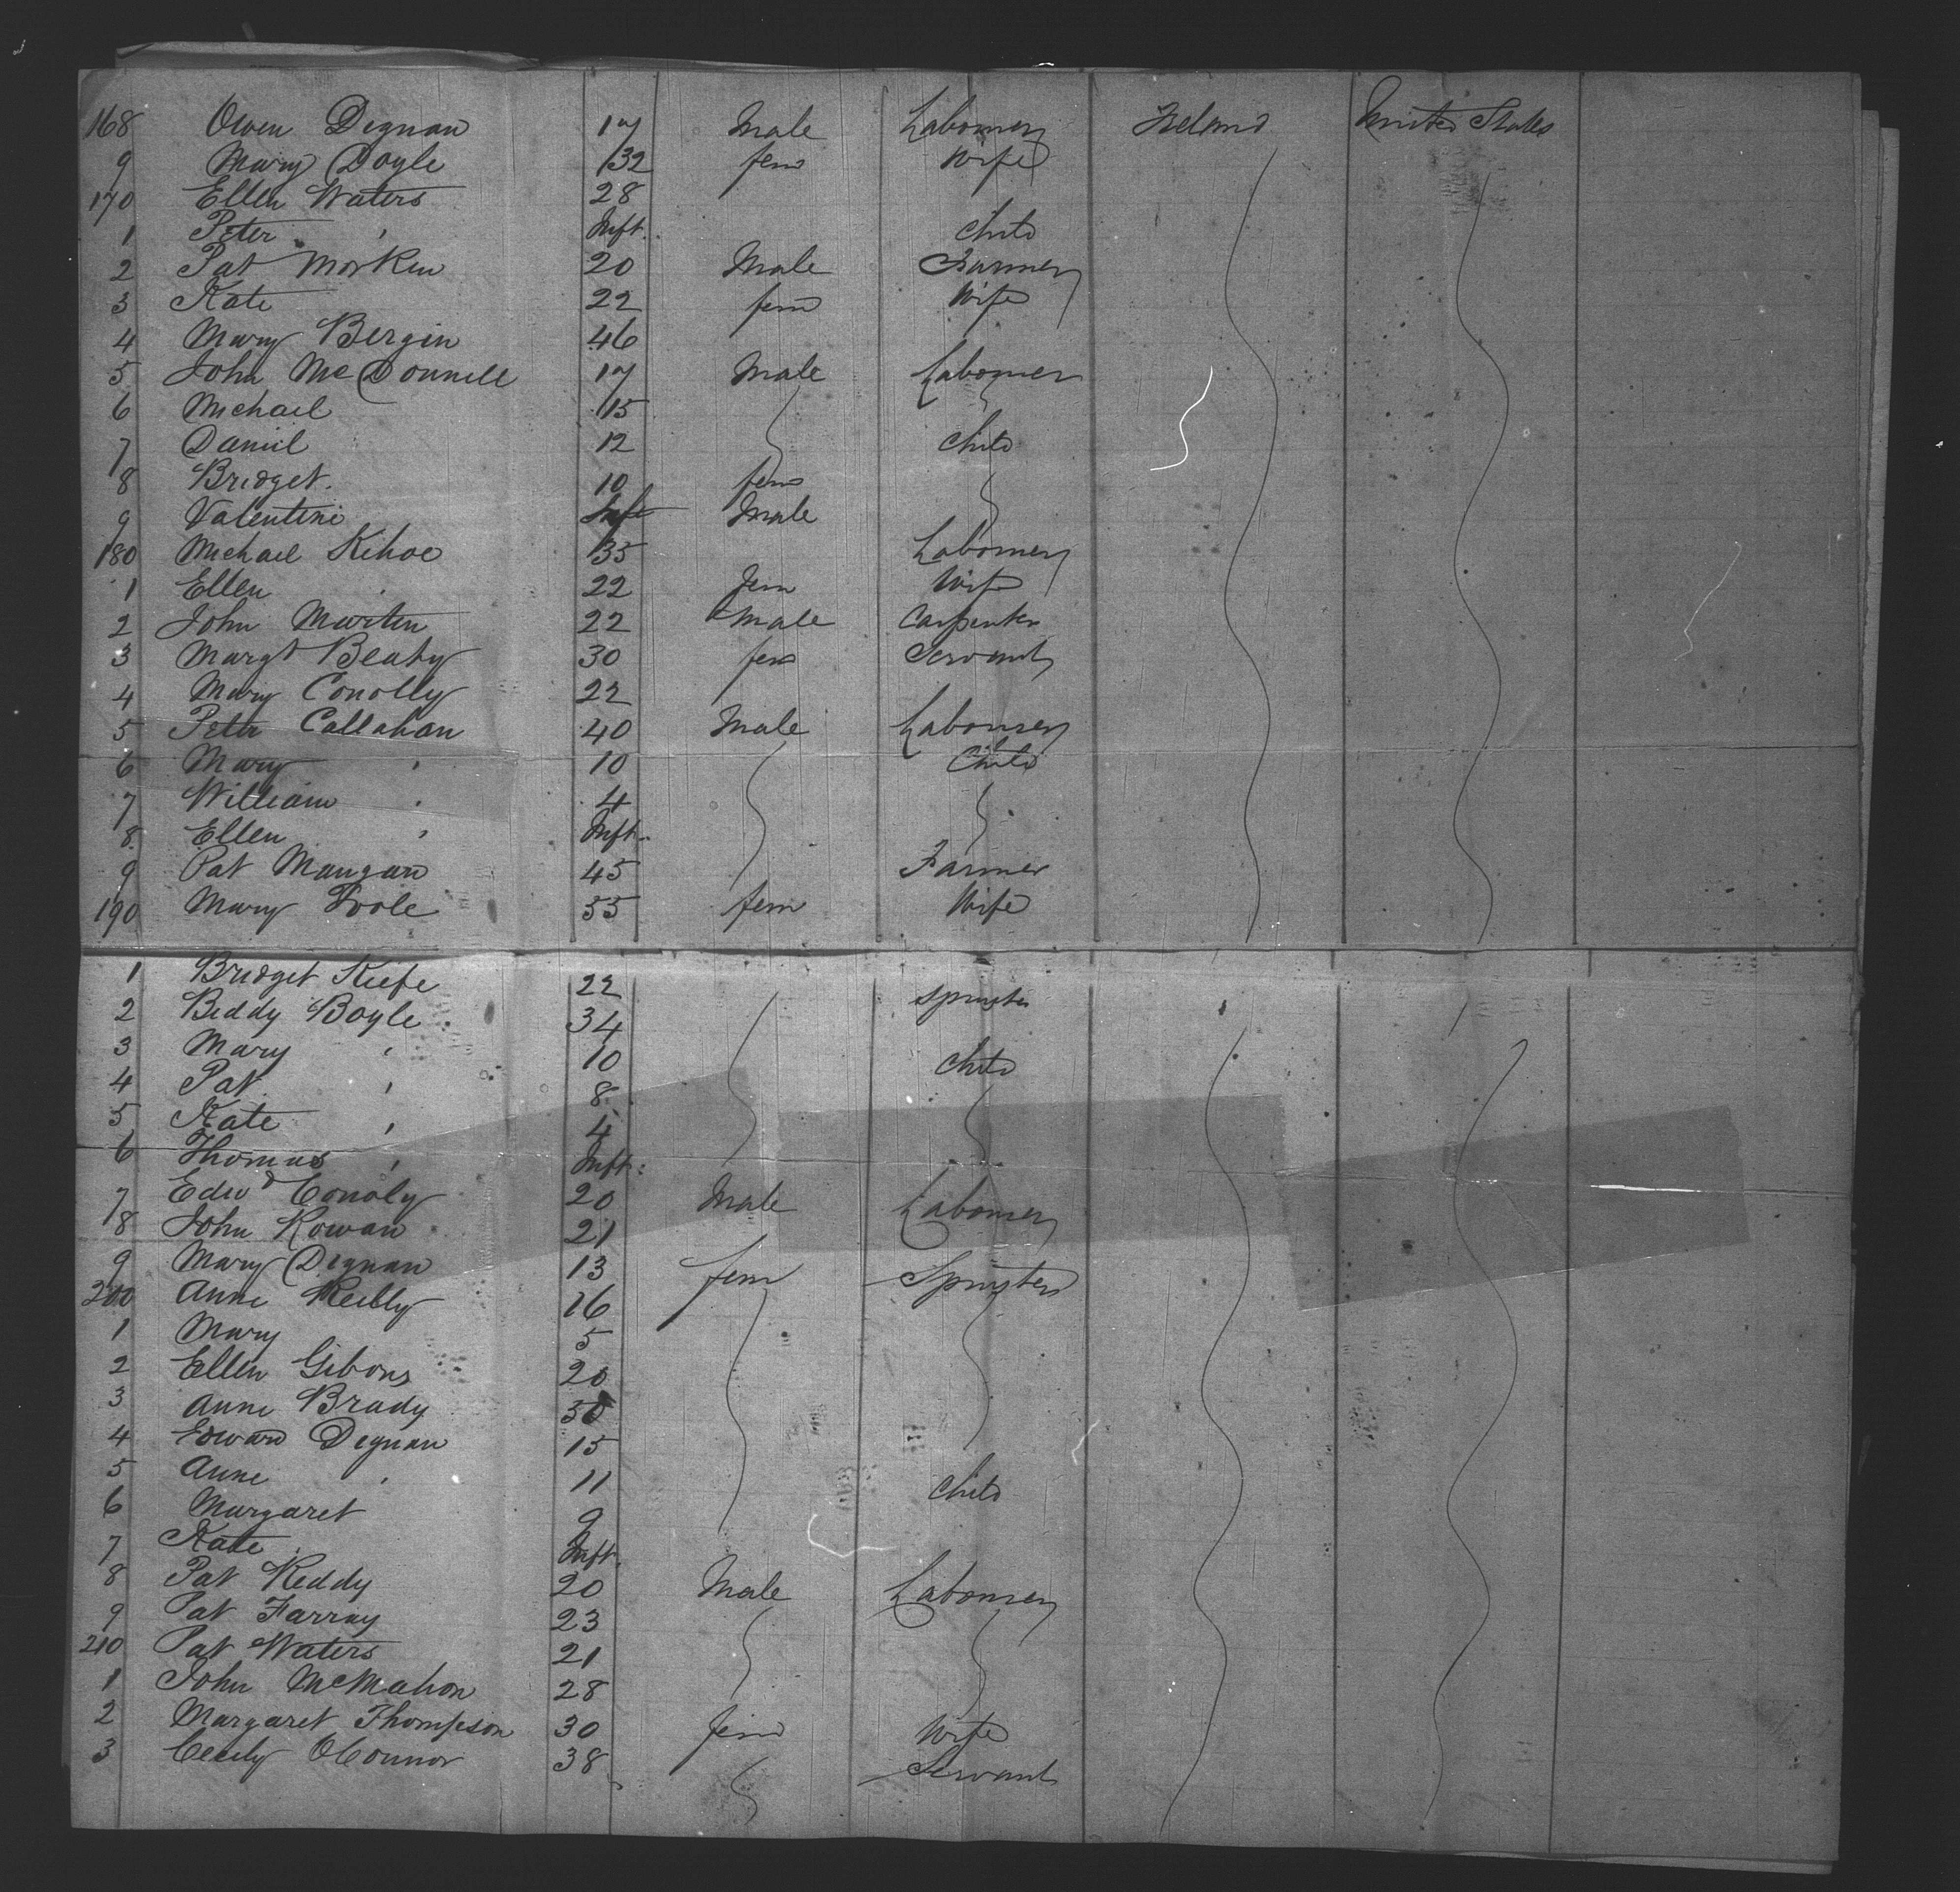 168 Owen Degnan 17 Male Labourer Ireland United States
9 Mary Doyle 32 fem Wife
170 Ellen Waters 28
1 Peter " Inft. Child
2 Pat 20 Male Farmer
3 Kate 22 fem Wife
4 Mary Bergin 46
5 John McDonnell 17 Male Labourer
6 Michael 15
7 Daniel 12 Child
8 Bridget. 10 fem
9 Valentine Inft Male
180 Michael Kehoe 35 Labourer
1 Ellen 22 Fem Wife
2 John Martin 22 Male Carpenter
3 Margt Beaty 30 fem Servant
4 Mary Conolly 22
5 Peter Callahan 40 Male Labourer
6 Mary " 10 Child
7 William " 4
8 Ellen " Inft.
9 Pat Mangan 45 Farmer
190 Mary Toole 55 fem Wife
1 Bridget Keefe 22 Spinster
2 Biddy Boyle 34
3 Mary " 10 Child
4 Pat " 8
5 Kate " 4
6 Thomas " Inft.
7 Edwd Conoly 20 Male Labourer
8 John Rowan 21
9 Mary Degnan 13 fem Spinster
200 Anne Reilly 16
1 Mary 5
2 Ellen Gibons 20
3 Anne Brady
4 Edward Degnan 15
5 Anne " 11 Child
6 Margaret 9
7 Kate Inft.
8 Pat Reddy 20 Male Labourer
9 Pat Farray 23
210 Pat Waters 21
1 John McMahon 28
2 Margaret Thompson 30 fem Wife
3 Cecily OConnor 38 Servant